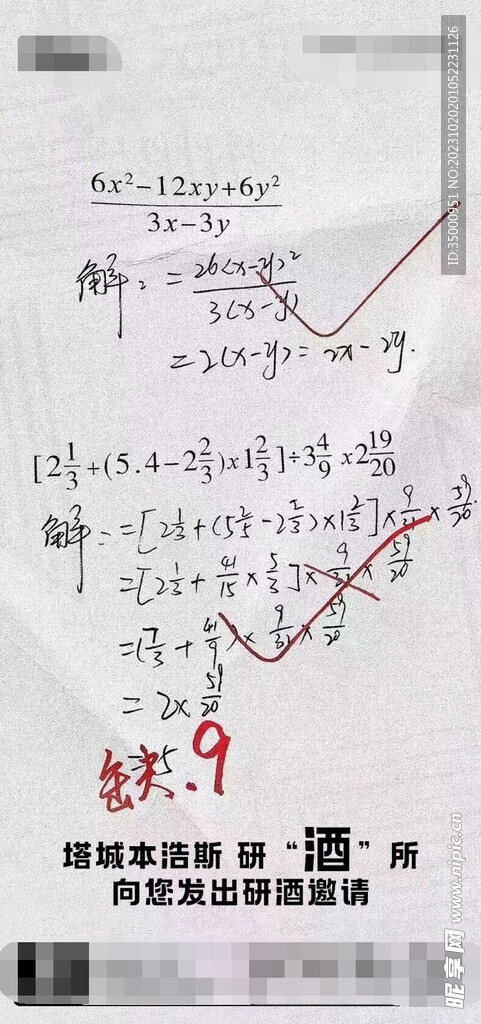 ID:35000951 NO:20231020201052231126
6x²-12xy+6y²
3x-3y
解: = 26(x-y)²
3(x-y)
=2(x-y)=2x-2y.
[2 1/3+(5.4-2 2/3)x1 2/3]÷3 4/9 x2 19/20
解: =[2 1/3+(5 2/5-2 2/3)×1 2/3]×9/31×59/20
=[2 1/3+41/15×5/3]×9/31×59/20
=(7/3+41/9)×9/31×59/20
=2×59/20
=5.9
塔城本浩斯 研“酒”所
向您发出研酒邀请
昵享网 www.nipic.cn